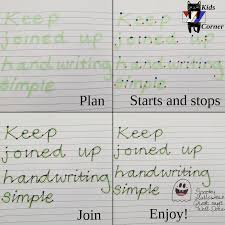 Kids
Corner
Keep
joined up
handwriting
simple
Plan
Keep
joined up
handwriting
simple
Starts and stops
Keep
joined up
handwriting
simple
Join
Keep
joined up
handwriting
simple
Enjoy!